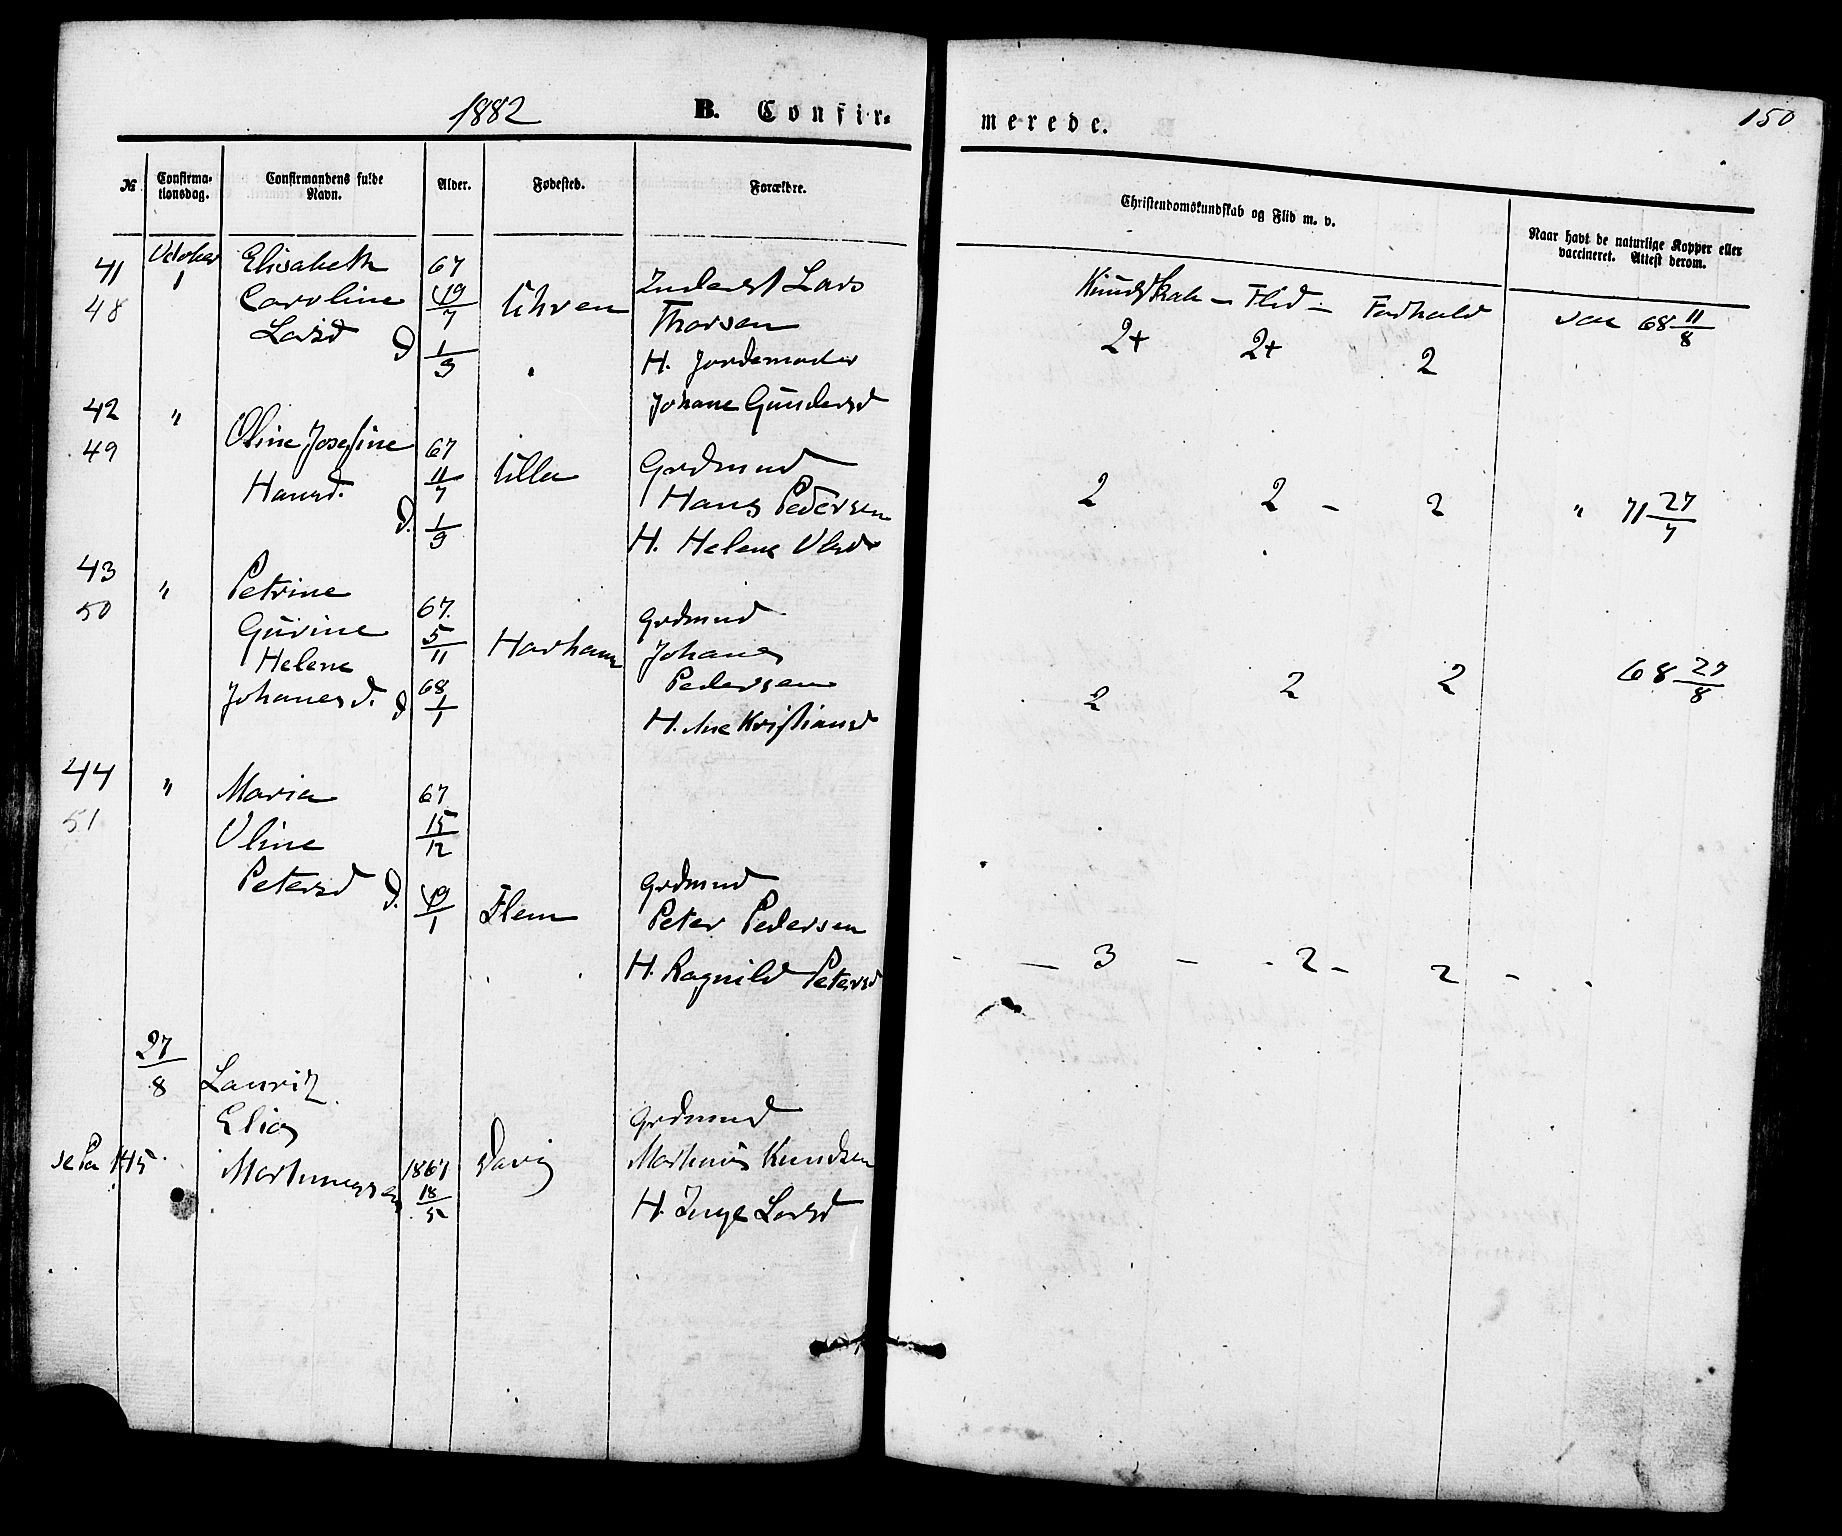 1882
B. Confir-
merede.
150
№
Confirma-
tionsdag.
Confirmandens fulde
Navn.
Alder.
Fødested.
Forældre.
Christendomskundskab og Flid m. v.
Naar havt de naturlige Kopper eller
vaccineret. Attest derom.
41
48
October
1
Elisabeth
Caroline
Larsd
D
67
19/7
1/9
Uhren
Inderst Lars
Thorsen
H. Jordemoder
Johane Gundersd
Kundskab – Flid – Forhold
2+ 2+ 2
vac 68 11/8
42
49
"
Oline Josefine
Hansd.
D.
67
11/7
1/9
Ulla
Grdmnd
Hans Pedersen
H. Helene Olsd
2 2 – 2
" 71 27/7
43
50
"
Petrine
Gurine
Helene
Johanesd.
D
67.
5/11
68
1/1
Harham
Grdmnd
Johanes
Pedersen
H. Ane Kristiansd
2 2 2
68 27/8
44
51
"
Maria
Oline
Petersd
D.
67
15/12
19/1
Flem
Grdmnd
Peter Pedersen
H. Ragnild Petersd
– 3 – 2 – 2 –
27/8
se Pa 145.
Lauritz
Elias
Martinussen
1867
18/5
Grdmnd
Martinus Knudsen
H. Inge Larsd